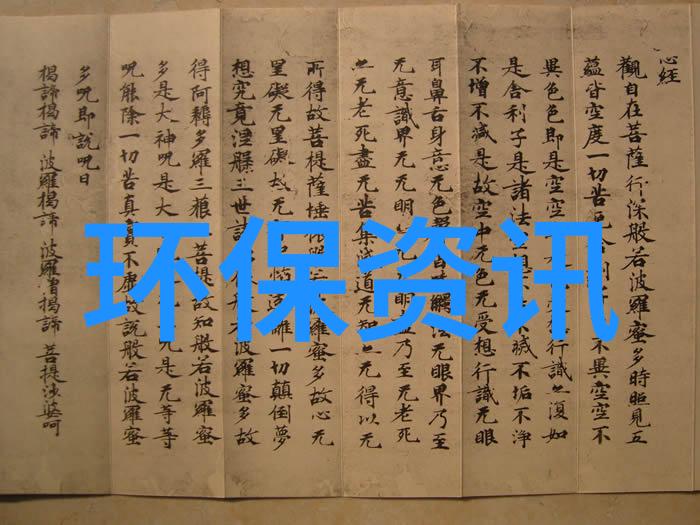 心经
觀自在菩薩行深般若波羅蜜多時照見五
蘊皆空度一切苦不異空空不
異色色即是空空想行識亦復如
是舍利子是諸法滅不垢不淨
不增不減是故空中无色无受想行識无眼
耳鼻舌身意无色觸法无眼界乃至
无意識界无无明乃至无老死
亦无老死盡无苦集滅道无智亦无得以无
所得故菩提薩埵依般若波羅蜜多故心无
罣礙无罣礙故无離一切顛倒夢
想究竟涅槃三世諸波羅蜜多故
得阿耨多羅三藐菩提故知般若波羅蜜
多是大神呪是大呪是无等等
呪能除一切苦真實不虛故說般若波羅蜜
多呪即說呪曰
揭諦揭諦 波羅揭諦 波羅僧揭諦 菩提娑婆呵
环保资讯